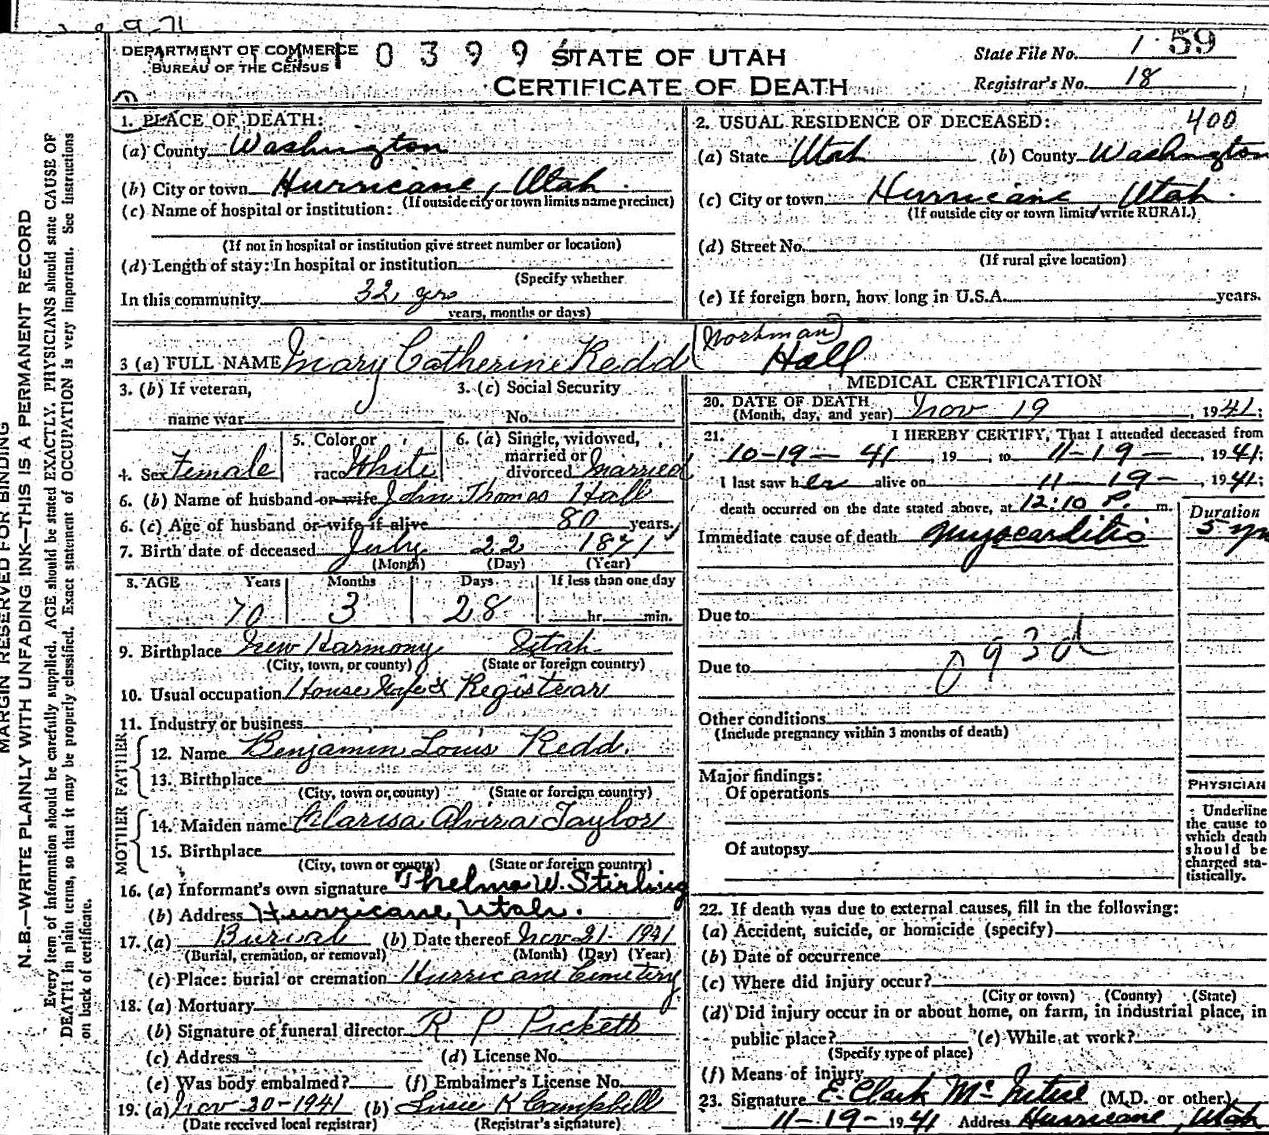 9 71
DEPARTMENT OF COMMERCE
BUREAU OF THE CENSUS
0399
STATE OF UTAH
CERTIFICATE OF DEATH
State File No. 159
Registrar's No. 18
1. PLACE OF DEATH:
(a) County Washington
(b) City or town Hurricane, Utah.
(If outside city or town limits name precinct)
(c) Name of hospital or institution:
(If not in hospital or institution give street number or location)
(d) Length of stay: In hospital or institution
(Specify whether
In this community 32 yrs
years, months or days)
2. USUAL RESIDENCE OF DECEASED: 400
(a) State Utah (b) County Washington
(c) City or town Hurricane Utah.
(If outside city or town limits write RURAL)
(d) Street No.
(If rural give location)
(e) If foreign born, how long in U.S.A. years.
3 (a) FULL NAME Mary Catherine Redd (Workman) Hall
3. (b) If veteran,
name war
3. (c) Social Security
No.
4. Sex Female
5. Color or
race White
6. (a) Single, widowed,
married or
divorced Married
6. (b) Name of husband or wife John Thomas Hall
6. (c) Age of husband or wife if alive 80 years,
7. Birth date of deceased July 22 1871
(Month) (Day) (Year)
8. AGE Years Months Days If less than one day
70 3 28 hr. min.
9. Birthplace New Harmony Utah
(City, town, or county) (State or foreign country)
10. Usual occupation House Wife & Registrar
11. Industry or business
FATHER
12. Name Benjamin Louis Redd.
13. Birthplace
(City, town or county) (State or foreign country)
MOTHER
14. Maiden name Clarisa Alvira Taylor
15. Birthplace
(City, town or county) (State or foreign country)
16. (a) Informant's own signature Thelma W. Stirling
(b) Address Hurricane, Utah.
17. (a) Burial (b) Date thereof Nov 21-1941
(Burial, cremation, or removal) (Month) (Day) (Year)
(c) Place: burial or cremation Hurricane Cemetery
18. (a) Mortuary
(b) Signature of funeral director R P Pickett
(c) Address (d) License No.
(e) Was body embalmed? (f) Embalmer's License No.
19. (a) Nov 20-1941 (b) Susie K Campbell
(Date received local registrar) (Registrar's signature)
MEDICAL CERTIFICATION
20. DATE OF DEATH
(Month, day, and year) Nov 19, 1941;
21. I HEREBY CERTIFY, That I attended deceased from
10-19-41, 19, to 11-19-, 1941;
I last saw her alive on 11-19-, 1941;
death occurred on the date stated above, at 12:10 P. m.
Duration
Immediate cause of death Myocarditis 5 yrs
Due to
Due to
093d
Other conditions
(Include pregnancy within 3 months of death)
Major findings:
Of operations
Of autopsy
PHYSICIAN
Underline
the cause to
which death
should be
charged sta-
tistically.
22. If death was due to external causes, fill in the following:
(a) Accident, suicide, or homicide (specify)
(b) Date of occurrence
(c) Where did injury occur?
(City or town) (County) (State)
(d) Did injury occur in or about home, on farm, in industrial place, in
public place? (e) While at work?
(Specify type of place)
(f) Means of injury
23. Signature E. Clark (M.D. or other)
11-19-1941 Address Hurricane, Utah
MARGIN RESERVED FOR BINDING
N.B.—WRITE PLAINLY WITH UNFADING INK—THIS IS A PERMANENT RECORD
Every item of information should be carefully supplied. AGE should be stated EXACTLY. PHYSICIANS should state CAUSE OF
DEATH in plain terms, so that it may be properly classified. Exact statement of OCCUPATION is very important. See Instructions
on back of certificate.